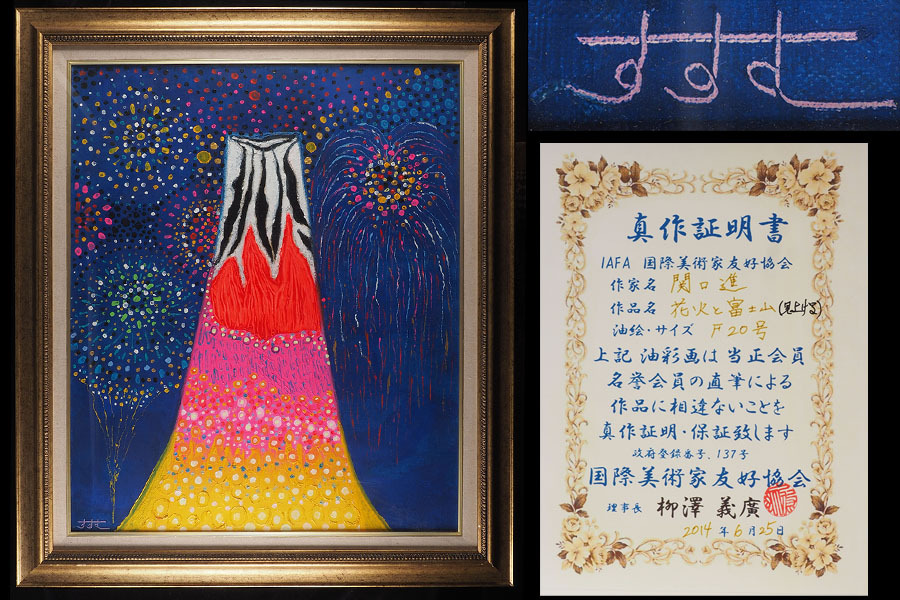 すすむ
真作証明書
IAFA 国際美術家友好協会
作家名 関口進
作品名 花火と富士山(見上げる)
油絵・サイズ F20号
上記 油彩画は 当正会員
名誉会員の直筆による
作品に相違ないことを
真作証明・保証致します
政府登録番号、137号
国際美術家友好協会
理事長 柳澤 義廣
2014年6月25日
すすむ